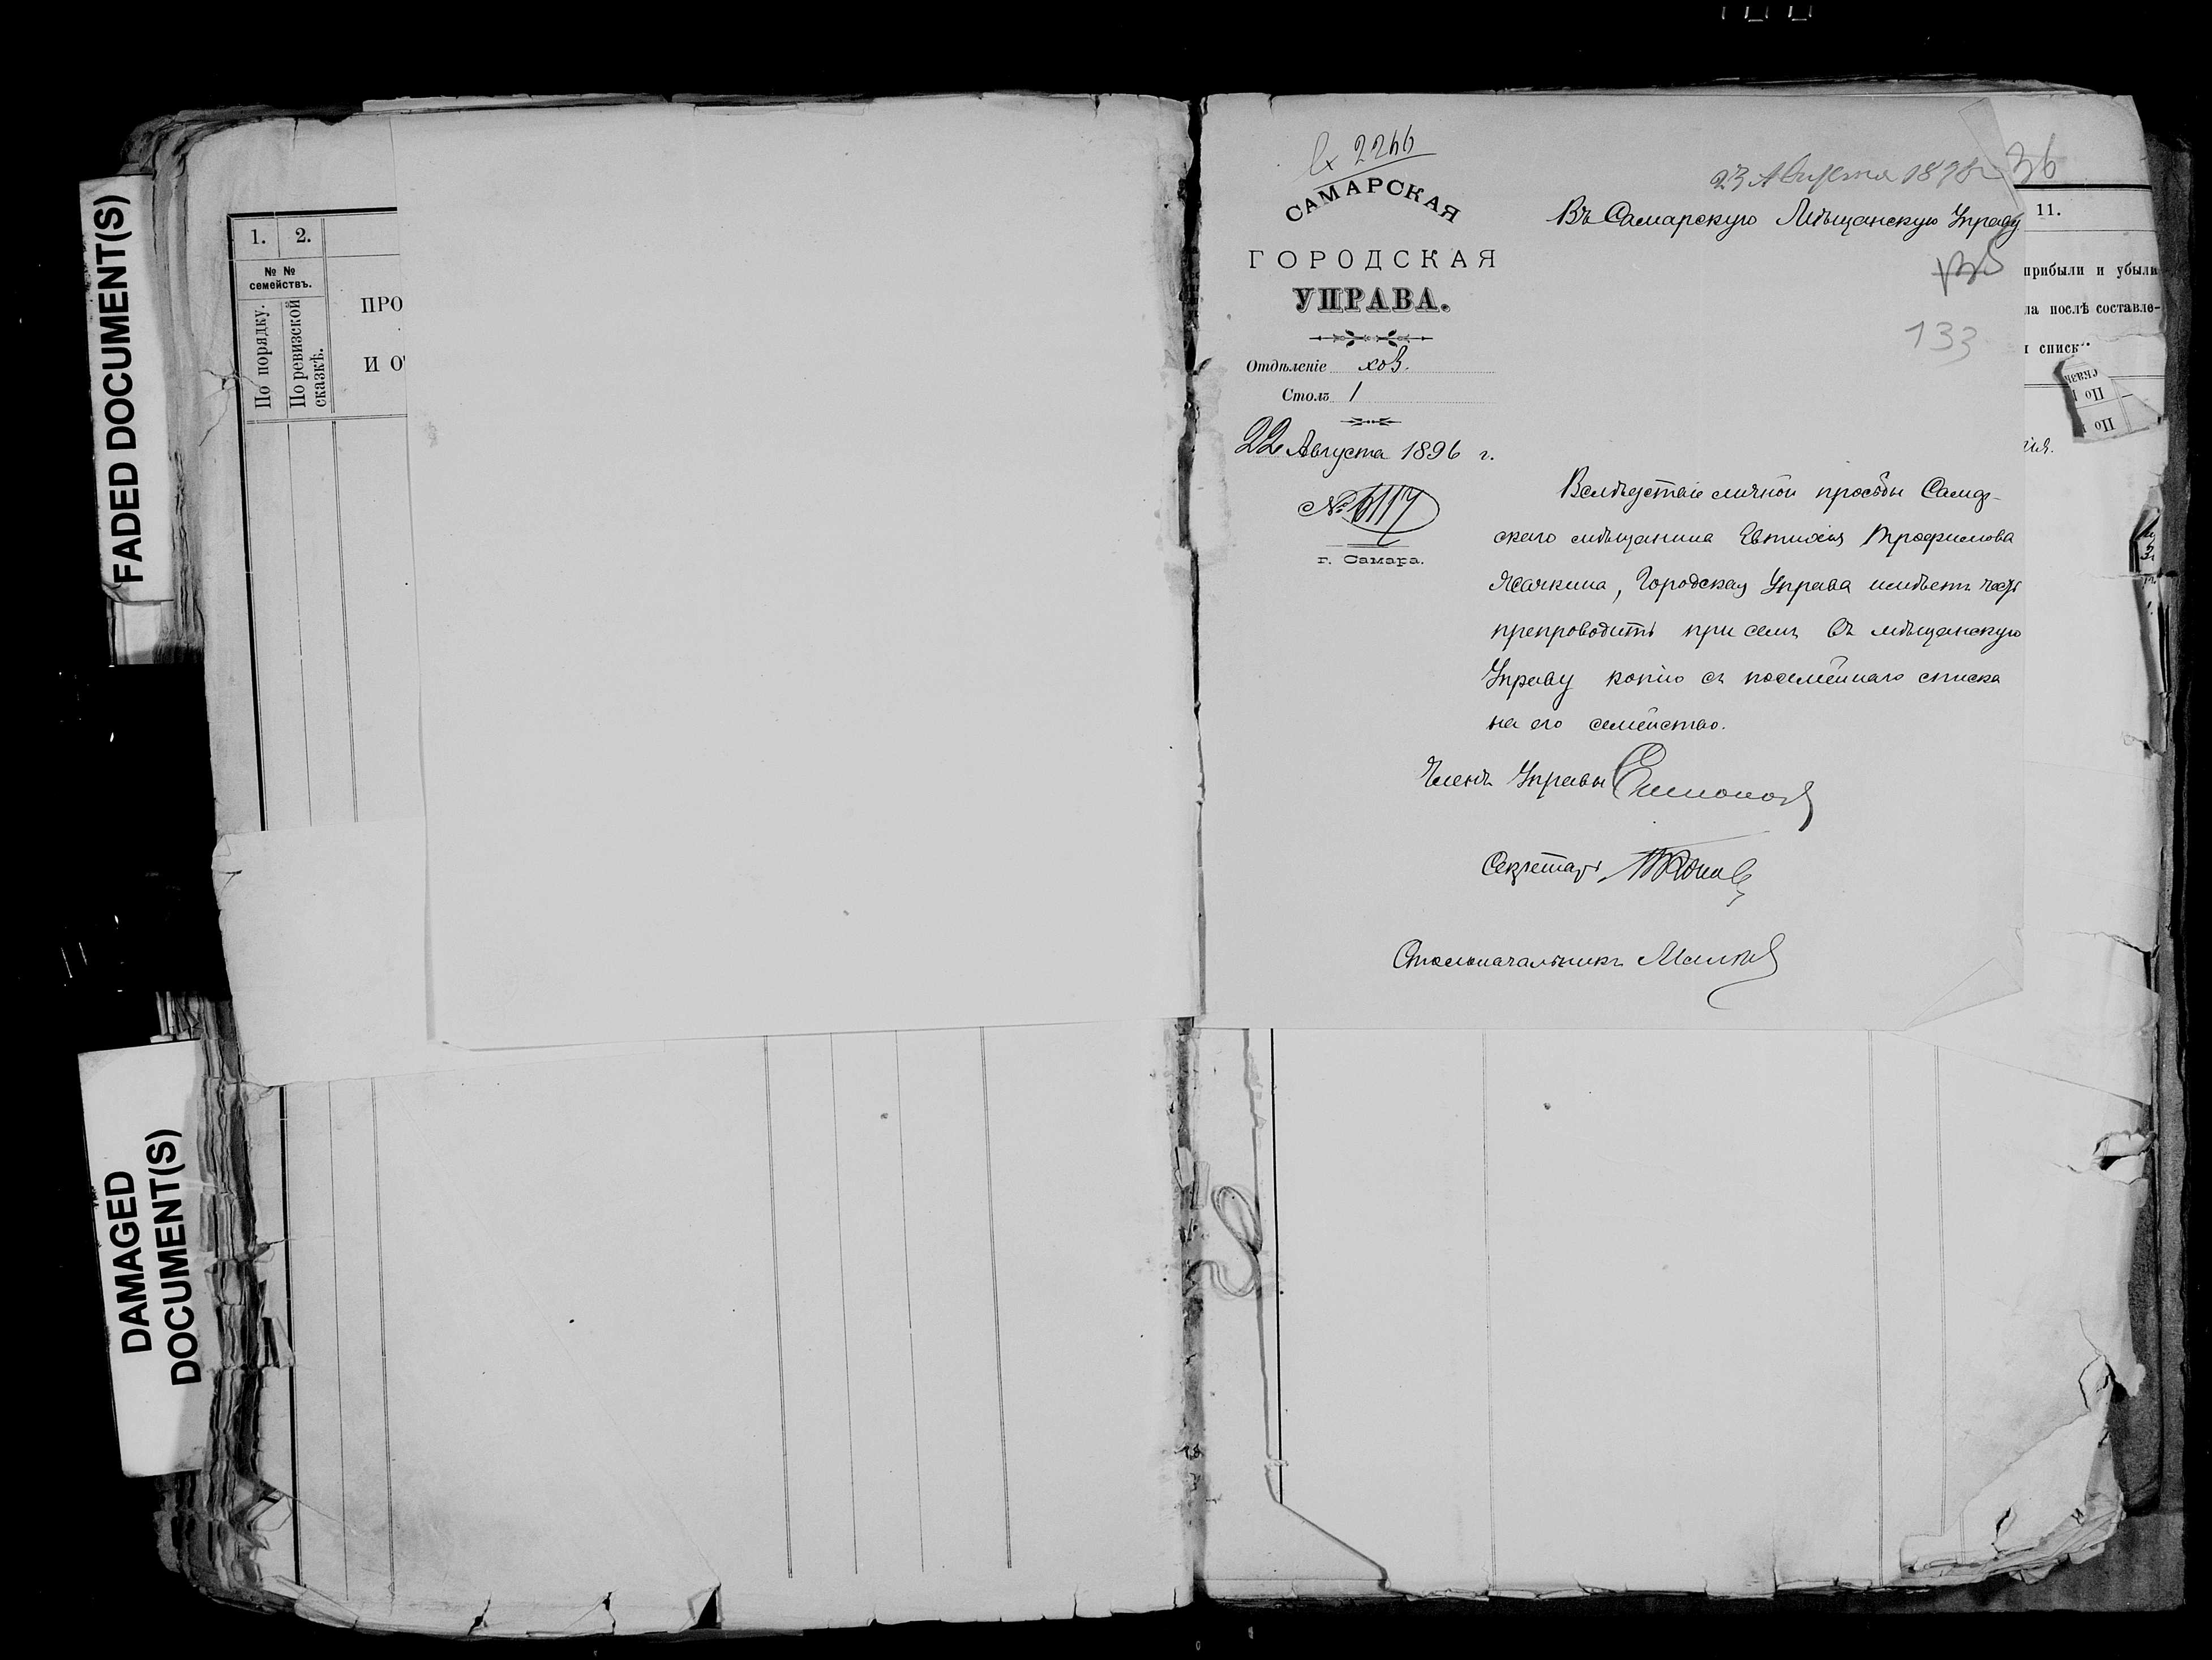 FADED DOCUMENT(S)
DAMAGED
DOCUMENT(S)
1. 2.
№ № семействъ.
По порядку.
По ревизской сказкѣ.
ПРО
И О
Вх 2266
САМАРСКАЯ
ГОРОДСКАЯ
УПРАВА.
Отдѣленіе хоз.
Столъ 1
22 Августа 1896 г.
№ 6117
г. Самара.
23 Августа 1896 г.
36
Въ Самарскую Мѣщанскую Управу
133
Вслѣдствіе личной просьбы Самар-
скаго мѣщанина Евтихія Трофимова
, Городская Управа имѣетъ честь
препроводить при семъ въ мѣщанскую
Управу копію съ посемейнаго списка
на его семейство.
Членъ Управы
Секретарь
Столоначальникъ
11.
прибыли и убыли
ла послѣ составле-
списк
ія.
По
По